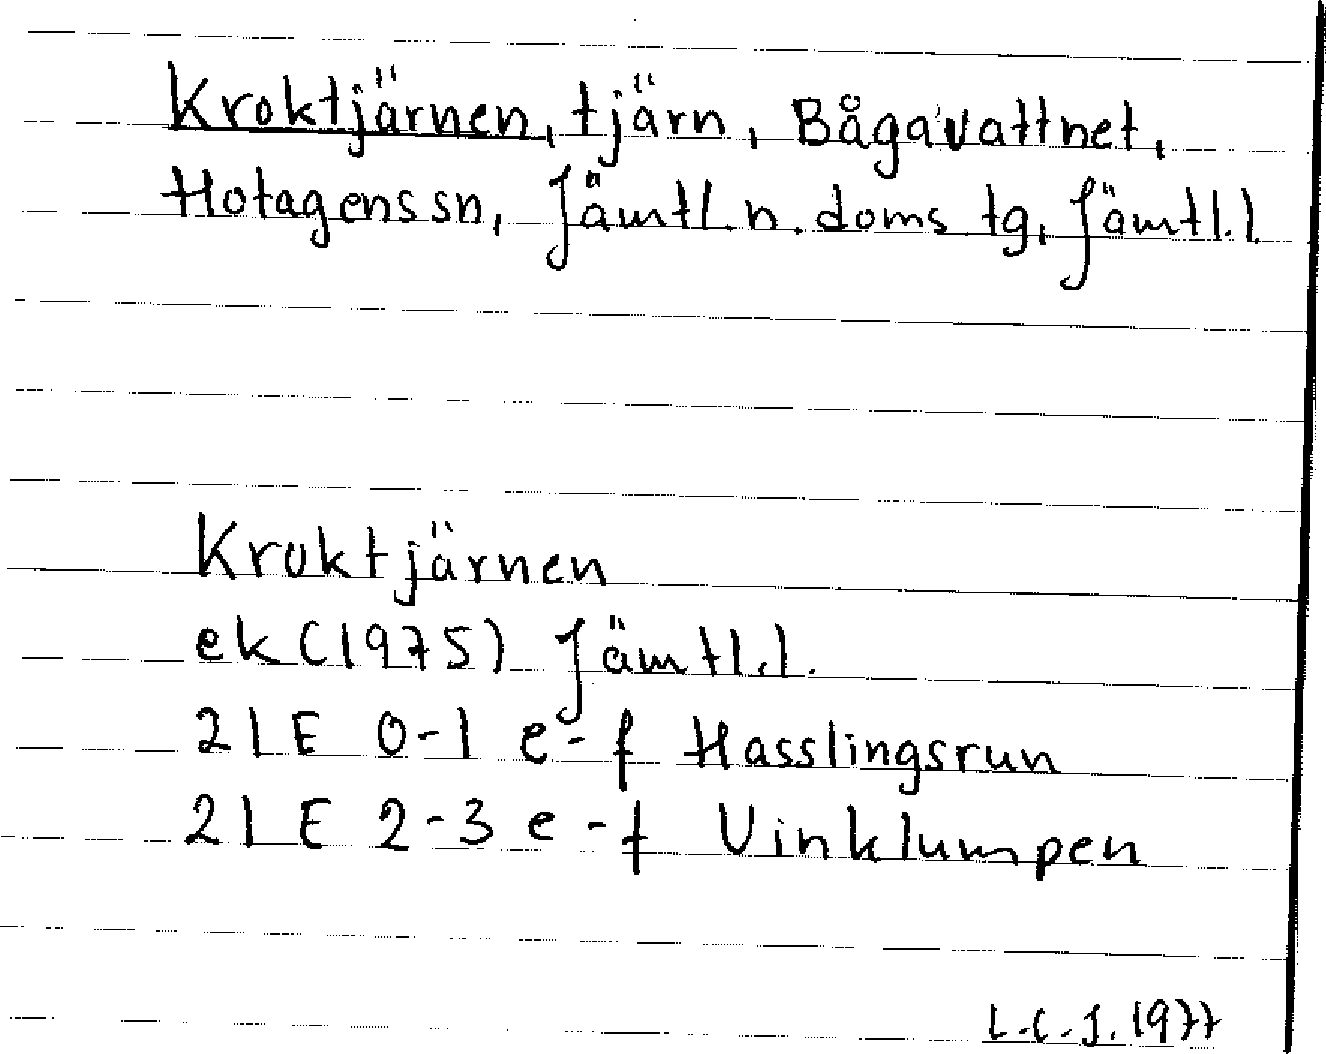 Kroktjärnen, tjärn, Bågavattnet,
Hotagens sn, Jämtl. n. doms tg, Jämtl. l.
Kroktjärnen
ek (1975) Jämtl. l.
21E 0-1 e-f Hasslingsrun
21E 2-3 e-f Vinklumpen
L.C.J. 1977